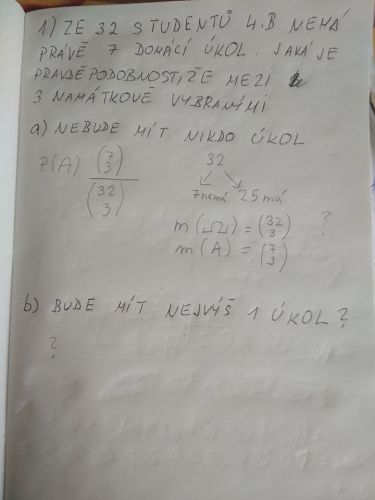 1) ZE 32 STUDENTŮ 4.B NEMÁ
PRÁVĚ 7 DOMÁCÍ ÚKOL. JAKÁ JE
PRAVDĚPODOBNOST, ŽE MEZI
3 NAMÁTKOVĚ VYBRANÝMI
a) NEBUDE MÍT NIKDO ÚKOL
P(A) (7 3) / (32 3)
32
7 nemá 25 má
m(Ω) = (32 3) ?
m(A) = (7 3)
b) BUDE MÍT NEJVÝŠ 1 ÚKOL?
?